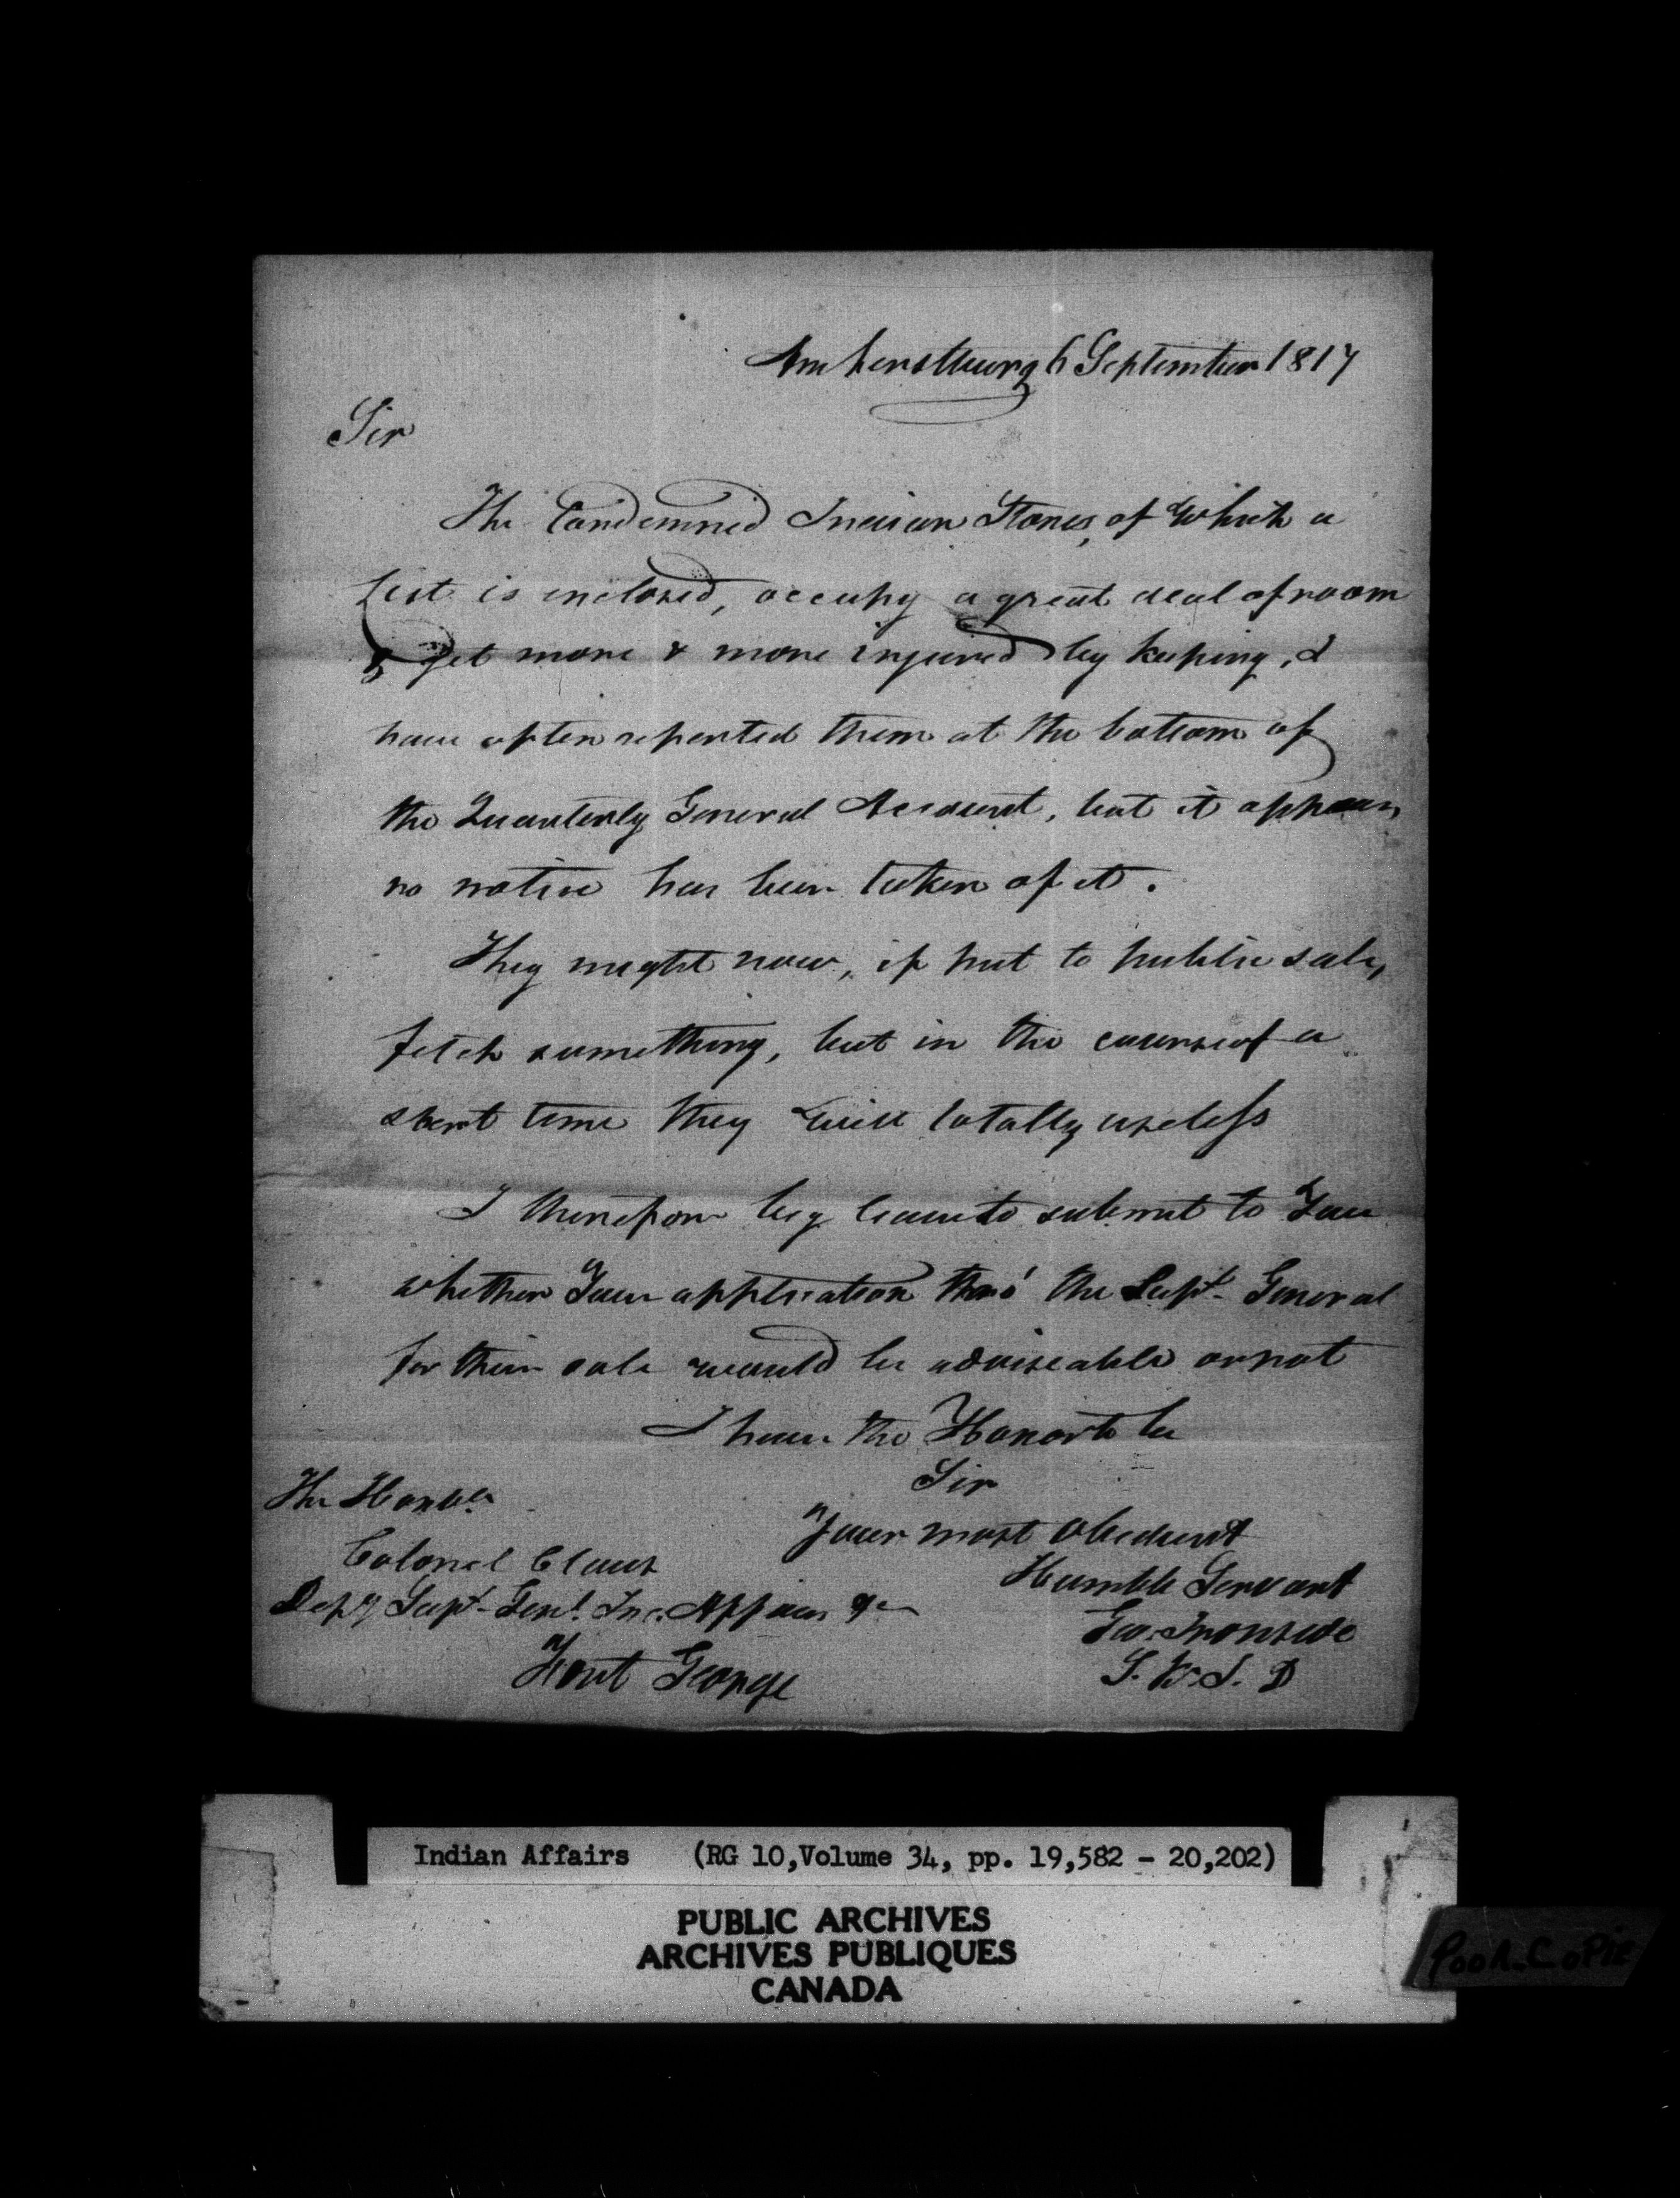 Amherstburg 6 September 1817
Sir
The Condemned Indian Stores, of which a
List is enclosed, occupy a great deal of room
& get more & more injured by keeping, I
have often reported them at the bottom of
the Quarterly General Account, but it appears
no notice has been taken of it.
They might now, if put to public sale,
fetch something, but in the course of a
short time they will totally useless
I therefore beg leave to submit to You
whether Your application thro' the Supt. General
for their sale would be adviseable or not
I have the Honor to be
Sir
Your most obedient
Humble Servant
Geo. Ironside
S. K. I. D
The Honble.
Colonel Claus
Depy Supt. Genl. Ind. Affairs &c
Fort George
Indian Affairs (RG 10, Volume 34, pp. 19,582 - 20,202)
PUBLIC ARCHIVES
ARCHIVES PUBLIQUES
CANADA
Pooh-CoPie